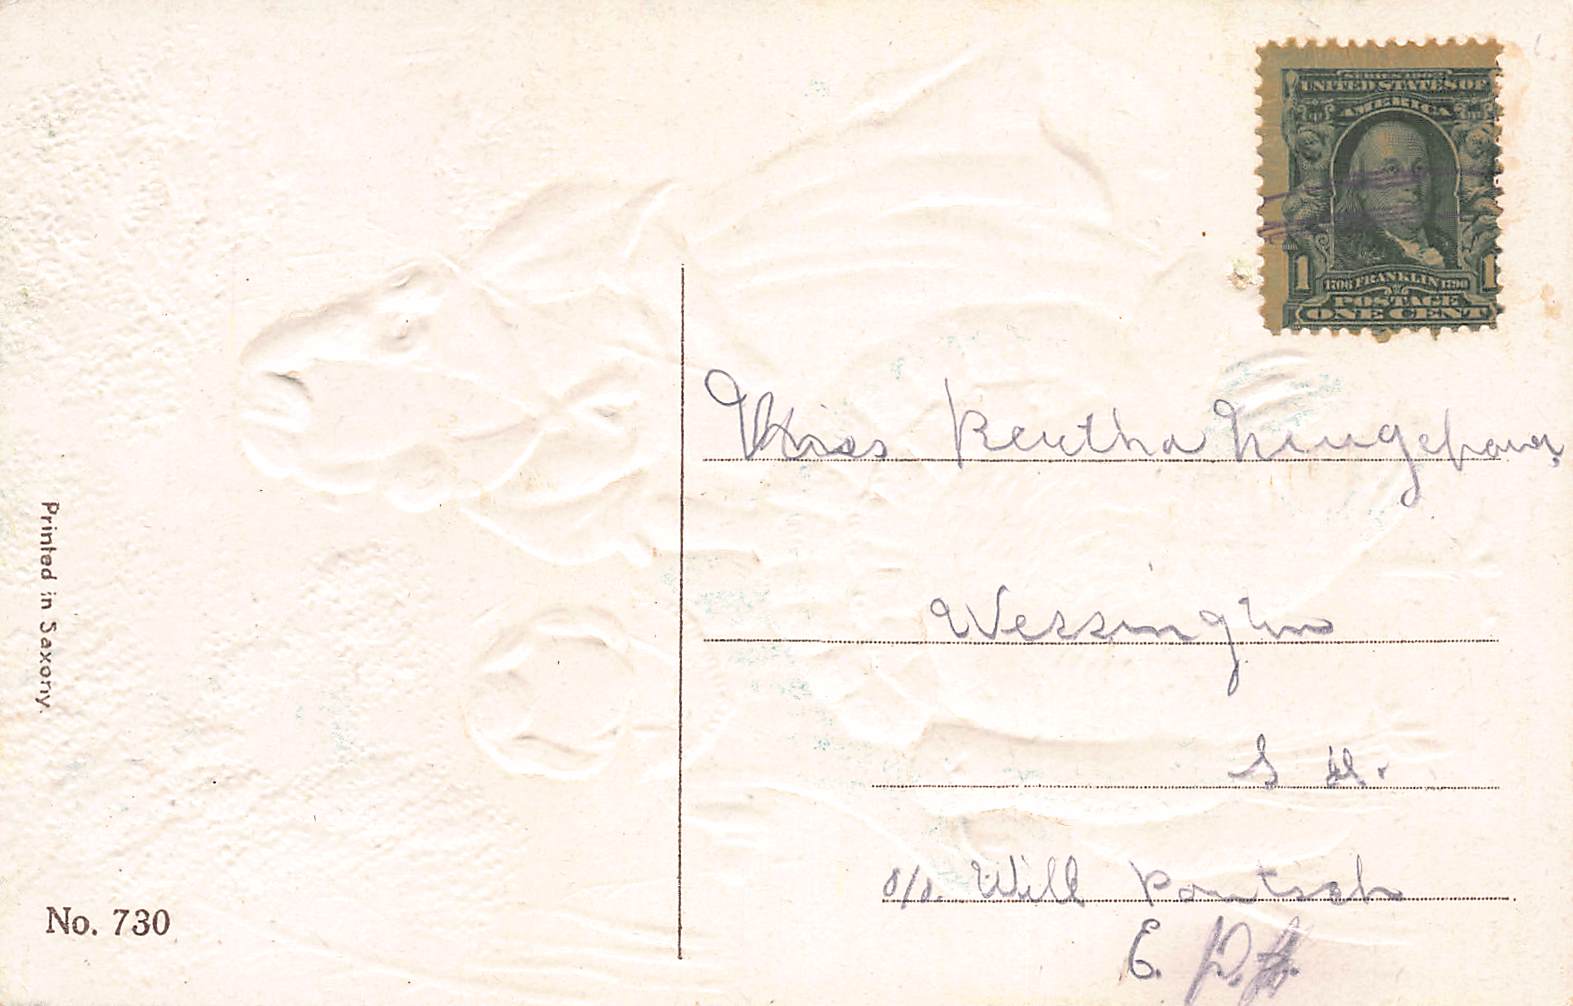 SERIES 1902
UNITED STATES OF
AMERICA
1 1
1706 FRANKLIN 1790
POSTAGE
ONE CENT
Miss Bertha
Wessington
S D.
c/o. Will
E.
Printed in Saxony.
No. 730